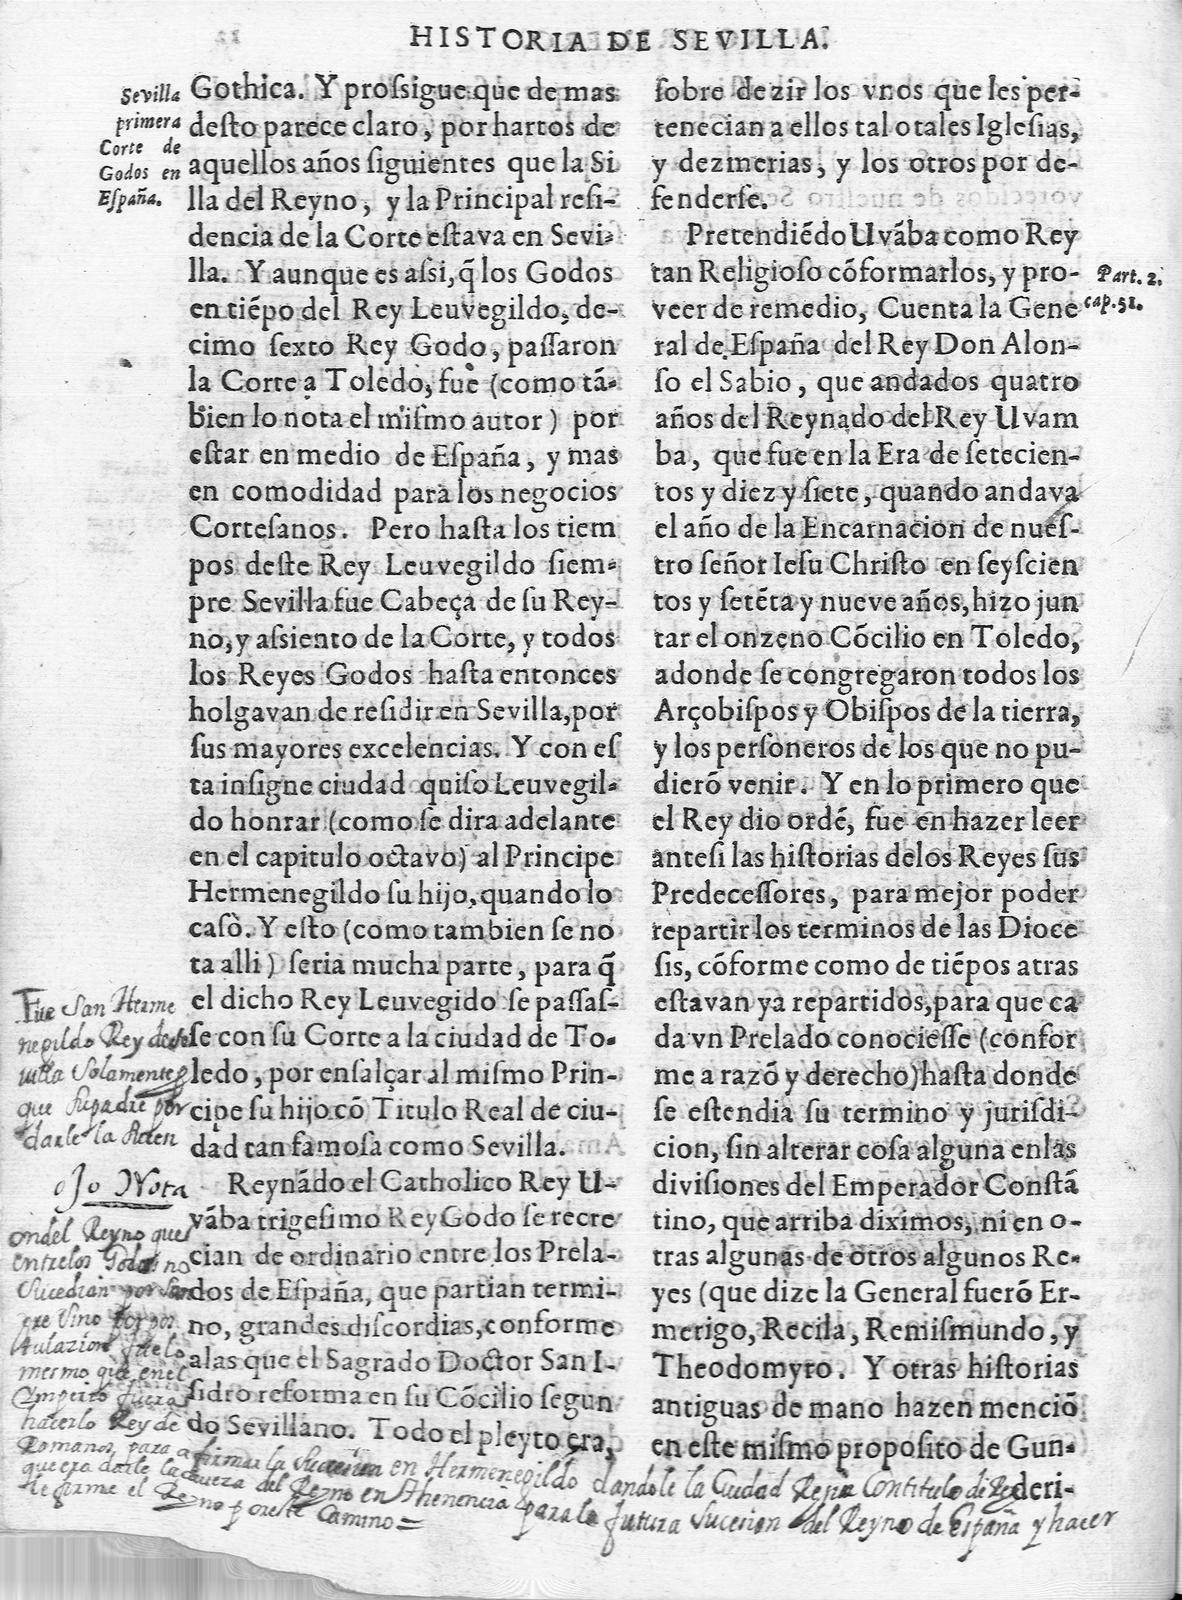 HISTORIA DE SEVILLA.
Sevilla
primera
Corte de
Godos en
Eſpaña.
Gothica. Y proſsigue que de mas
deſto parece claro, por hartos de
aquellos años ſiguientes que la Si
lla del Reyno, y la Principal reſi-
dencia de la Corte eſtava en Sevi-
lla. Y aunque es aſsi, q̃ los Godos
en tiẽpo del Rey Leuvegildo, de-
cimo ſexto Rey Godo, paſſaron
la Corte a Toledo, fue (como tã-
bien lo nota el miſmo autor) por
eſtar en medio de Eſpaña, y mas
en comodidad para los negocios
Corteſanos. Pero haſta los tiem
pos deſte Rey Leuvegildo ſiem-
pre Sevilla fue Cabeça de ſu Rey-
no, y aſsiento de la Corte, y todos
los Reyes Godos haſta entonces
holgavan de reſidir en Sevilla, por
ſus mayores excelencias. Y con eſ
ta inſigne ciudad quiſo Leuvegil-
do honrar (como ſe dira adelante
en el capitulo octavo) al Principe
Hermenegildo ſu hijo, quando lo
casò. Y eſto (como tambien ſe no
ta alli) ſeria mucha parte, para q̃
el dicho Rey Leuvegido ſe paſſaſ-
ſe con ſu Corte a la ciudad de To-
ledo, por enſalçar al miſmo Prin-
cipe ſu hijo cõ Titulo Real de ciu-
dad tan famoſa como Sevilla.
Reynãdo el Catholico Rey U-
vãba trigeſimo Rey Godo ſe recre
cian de ordinario entre los Prela-
dos de Eſpaña, que partian termi-
no, grandes diſcordias, conforme
alas que el Sagrado Doctor San I-
ſidro reforma en ſu Cõcilio ſegun
do Sevillano. Todo el pleyto era,
ſobre dezir los vnos que les per-
tenecian a ellos tal o tales Igleſias,
y dezmerias, y los otros por de-
fenderſe.
Pretendiẽdo Uvãba como Rey
tan Religioſo cõformarlos, y pro-
veer de remedio, Cuenta la Gene
ral de Eſpaña del Rey Don Alon-
ſo el Sabio, que andados quatro
años del Reynado del Rey Uvam
ba, que fue en la Era de ſetecien-
tos y diez y ſiete, quando andava
el año de la Encarnacion de nueſ-
tro ſeñor Ieſu Chriſto en ſeyſcien
tos y ſetẽta y nueve años, hizo jun
tar el onzeno Cõcilio en Toledo,
adonde ſe congregaron todos los
Arçobiſpos y Obiſpos de la tierra,
y los perſoneros de los que no pu-
dierõ venir. Y en lo primero que
el Rey dio ordẽ, fue en hazer leer
anteſi las hiſtorias delos Reyes ſus
Predeceſſores, para mejor poder
repartir los terminos de las Dioce
ſis, cõforme como de tiẽpos atras
eſtavan ya repartidos, para que ca
da vn Prelado conocieſſe (confor
me a razõ y derecho) haſta donde
ſe eſtendia ſu termino y juriſdi-
cion, ſin alterar coſa alguna en las
diviſiones del Emperador Conſtã
tino, que arriba diximos, ni en o-
tras algunas de otros algunos Re-
yes (que dize la General fuerõ Er-
merigo, Recila, Remiſmundo, y
Theodomyro. Y otras hiſtorias
antiguas de mano hazen menciõ
en eſte miſmo propoſito de Gun-
deri-
Part. 2.
cap. 51.
Fue San Herme
negildo Rey de Se
uilla Solamente
que Su padre por
darle la
Ojo Nota
on del Reyno que
entre los Godos no
Sucedian por San
gre Sino por pos
tulazion fue lo
mesmo que en el
Imperio fuera
hacerlo Rey de
Romanos, para afirmar la Sucesion en Hermenegildo dandole la Ciudad Regia Con titulo de Rey
que era darle la del Reyno en Thenencia para la futura Sucesion del Reyno de España y hacer
le firme el Reyno por este Camino =